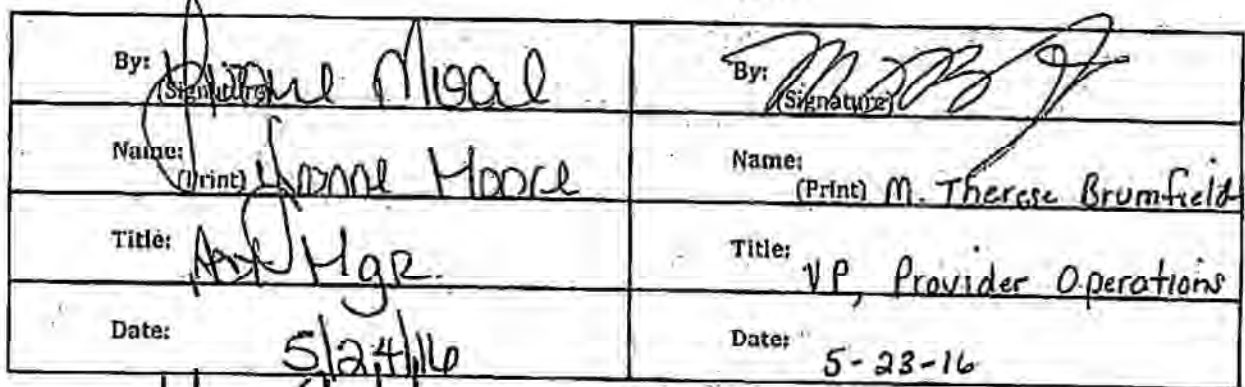 By:
(Signature)
By:
(Signature)
Name:
(Print) Yvonne Moore
Name:
(Print) M. Therese Brumfield
Title: Mgr.
Title: VP, Provider Operations
Date: 5/24/16
Date: 5-23-16